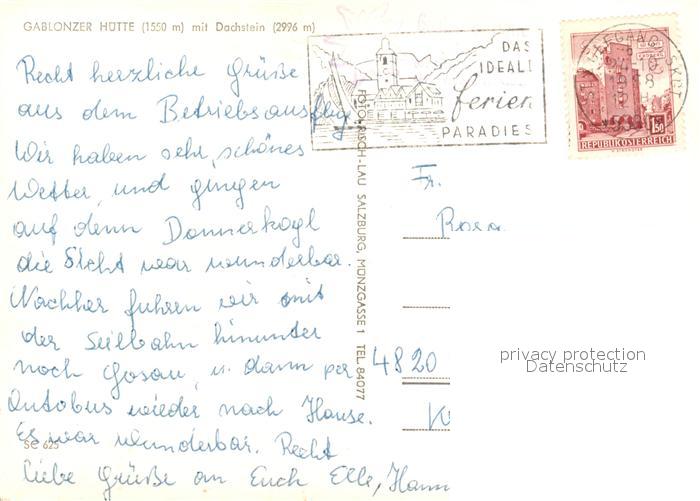 GABLONZER HÜTTE (1550 m) mit Dachstein (2996 m)
Recht herzliche Grüße
aus dem Betriebsausflug
Wir haben sehr schönes
Wetter und gingen
auf denn Donnerkogl
die Sicht war wunderbar.
Nachher fuhren wir mit
der Seilbahn hinunter
nach Gosau, u. dann per
Autobus wieder nach Hause.
Es war wunderbar. Recht
liebe Grüße an Euch Elle, Hann
SC 625
FOTO RISCH-LAU SALZBURG, MÜNZGASSE 1 TEL. 84077
DAS
IDEALE
ferien
PARADIES
1.50
REPUBLIK ÖSTERREICH
Fr.
Rosa
4820
privacy protection
Datenschutz